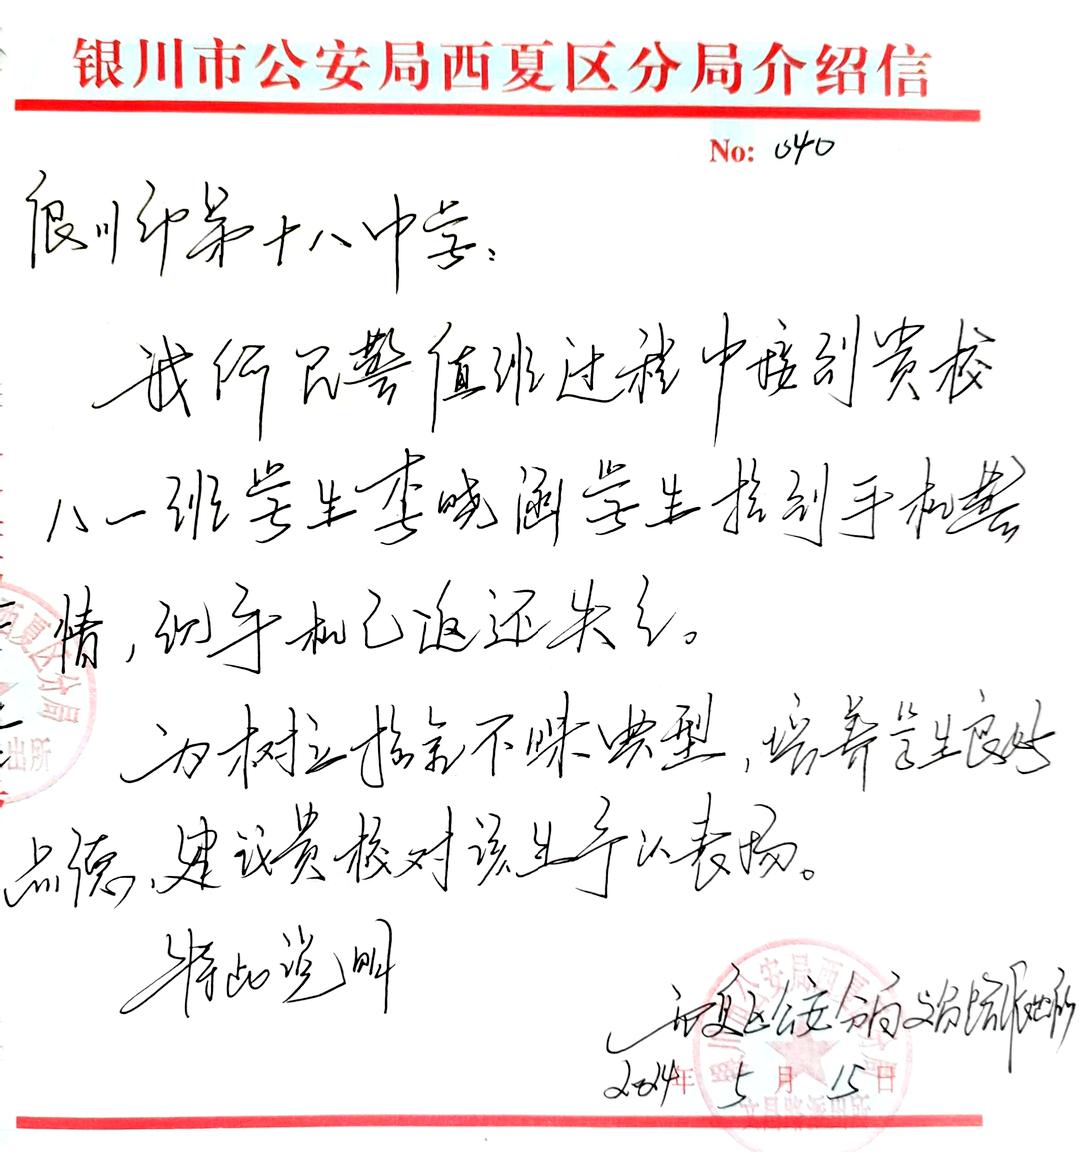 银川市公安局西夏区分局介绍信
No: 040
银川市第十八中学：
我所民警值班过程中接到贵校
八一班学生李晓涵学生捡到手机警
情，现手机已返还失主。
为树立拾金不昧典型，培养学生良好
品德，建议贵校对该生予以表扬。
特此说明
西夏区公安分局文昌路派出所
2024年5月15日
西夏区分局
出所
银川市公安局西夏区分局
文昌路派出所